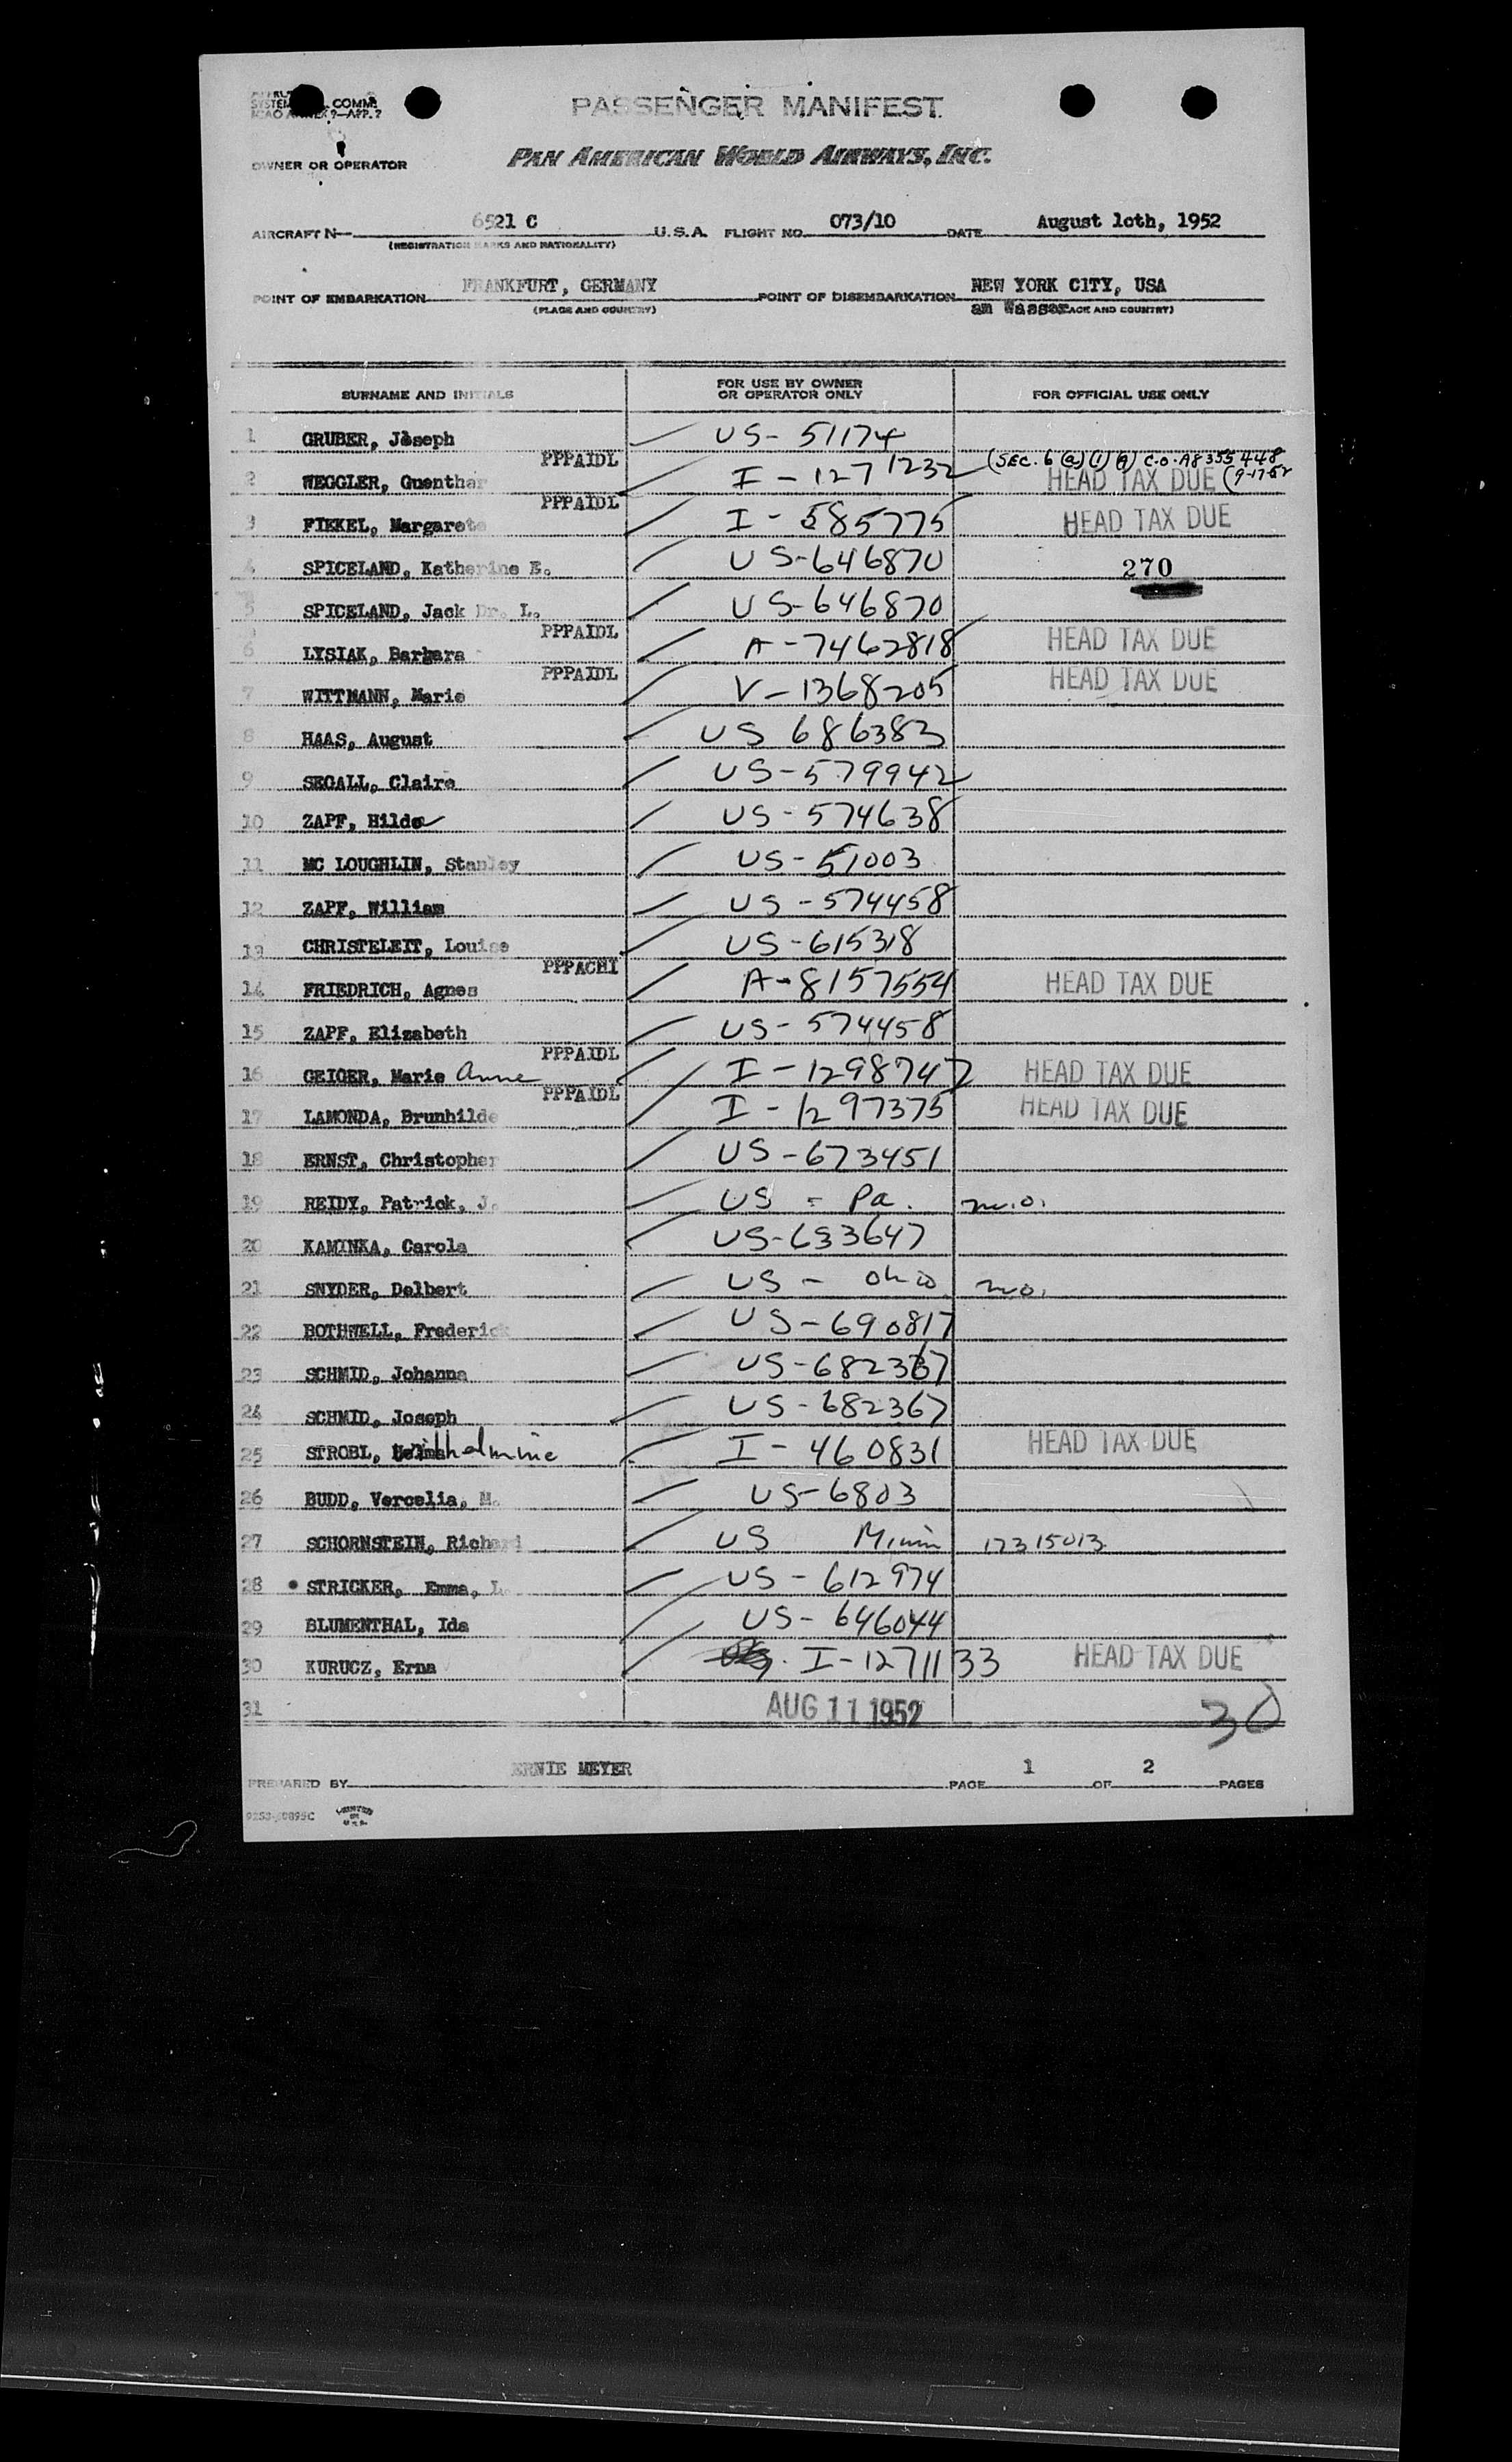 SYSTEM COMM.
PASSENGER MANIFEST
OWNER OR OPERATOR
PAN AMERICAN WORLD AIRWAYS, INC.
AIRCRAFT N— 6521 C U.S.A. FLIGHT NO. 073/10 DATE August 1oth, 1952
(REGISTRATION MARKS AND NATIONALITY)
POINT OF EMBARKATION FRANKFURT, GERMANY POINT OF DISEMBARKATION NEW YORK CITY, USA
(PLACE AND COUNTRY) am Wasser ACE AND COUNTRY)
SURNAME AND INITIALS FOR USE BY OWNER OR OPERATOR ONLY FOR OFFICIAL USE ONLY
1 GRUBER, Joseph US- 51174
PPPAIDL (SEC. 6 (a) (1) (A) C.O. A8 355 448
2 WEGGLER, Guenther I - 127 1232 HEAD TAX DUE (9-17-52
PPPAIDL
3 FIEKEL, Margarete I - 585775 HEAD TAX DUE
4 SPICELAND, Katherine E. US-646870 270
5 SPICELAND, Jack Dr. L. US-646870
PPPAIDL
6 LYSIAK, Barbara A-7462818 HEAD TAX DUE
PPPAIDL
7 WITTMANN, Marie V-1368205 HEAD TAX DUE
8 HAAS, August US 686383
9 SEGALL, Claire US-579942
10 ZAPF, Hilda US-574638
11 MC LOUGHLIN, Stanley US-51003
12 ZAPF, William US-574458
13 CHRISTELEIT, Louise US-615318
PPPACHI
14 FRIEDRICH, Agnes A-8157554 HEAD TAX DUE
15 ZAPF, Elizabeth US-574458
PPPAIDL
16 GEIGER, Marie Anne I-1298747 HEAD TAX DUE
PPPAIDL
17 LAMONDA, Brunhilde I-1297375 HEAD TAX DUE
18 ERNST, Christopher US-673451
19 REIDY, Patrick, J. US - Pa. m.o.
20 KAMINKA, Carola US-633647
21 SNYDER, Delbert US - Ohio mo.
22 BOTHWELL, Frederick US-690817
23 SCHMID, Johanna US-682367
24 SCHMID, Joseph US-682367
25 STROBL, Wilhelmine I- 460831 HEAD TAX DUE
26 BUDD, Vercelia, M. US-6803
27 SCHORNSTEIN, Richard US Minn 17315013
28 STRICKER, Emma, L. US-612974
29 BLUMENTHAL, Ida US-646044
30 KURUCZ, Erna I-1271133 HEAD TAX DUE
31 AUG 11 1952 30
PREPARED BY ERNIE MEYER PAGE 1 OF 2 PAGES
PRINTED IN U.S.A.